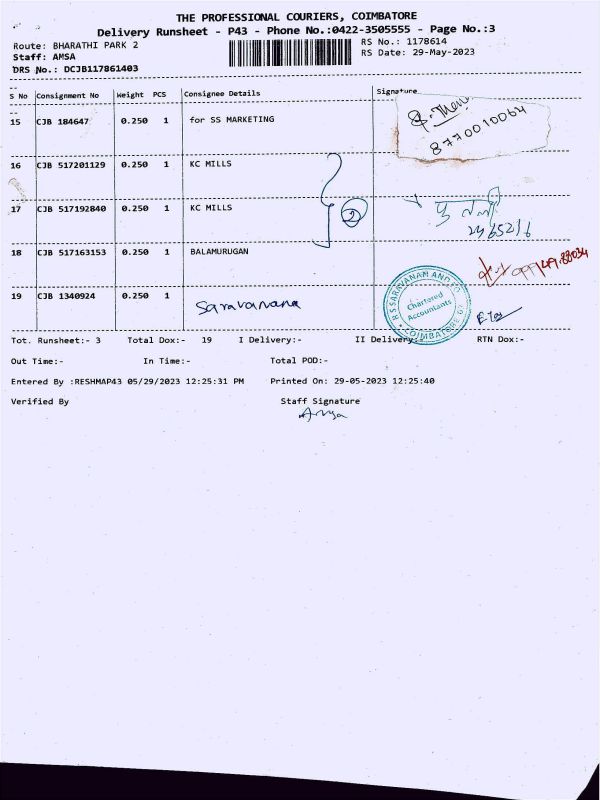 THE PROFESSIONAL COURIERS, COIMBATORE
Delivery Runsheet - P43 - Phone No.:0422-3505555 - Page No.:3
Route: BHARATHI PARK 2
RS No.: 1178614
Staff: AMSA
RS Date: 29-May-2023
DRS No.: DCJB117861403
S No Consignment No Weight PCS Consignee Details Signature
15 CJB 184647 0.250 1 for SS MARKETING
8770010064
16 CJB 517201129 0.250 1 KC MILLS
2
17 CJB 517192840 0.250 1 KC MILLS
18 CJB 517163153 0.250 1 BALAMURUGAN
19 CJB 1340924 0.250 1 Saravanana
R S SARAVANAM AND CO
Chartered
Accountants
COIMBATORE
Tot. Runsheet:- 3 Total Dox:- 19 I Delivery:- II Delivery:- RTN Dox:-
Out Time:- In Time:- Total POD:-
Entered By :RESHMAP43 05/29/2023 12:25:31 PM Printed On: 29-05-2023 12:25:40
Verified By Staff Signature
Amsa